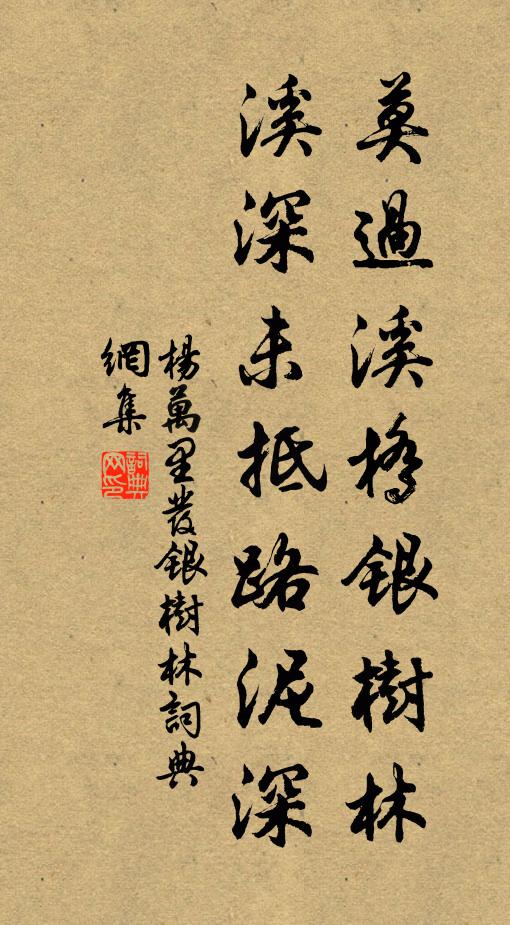 莫過溪橋銀樹林
溪深未抵路泥深
楊萬里發銀樹林詞典
網集
詞典
网印